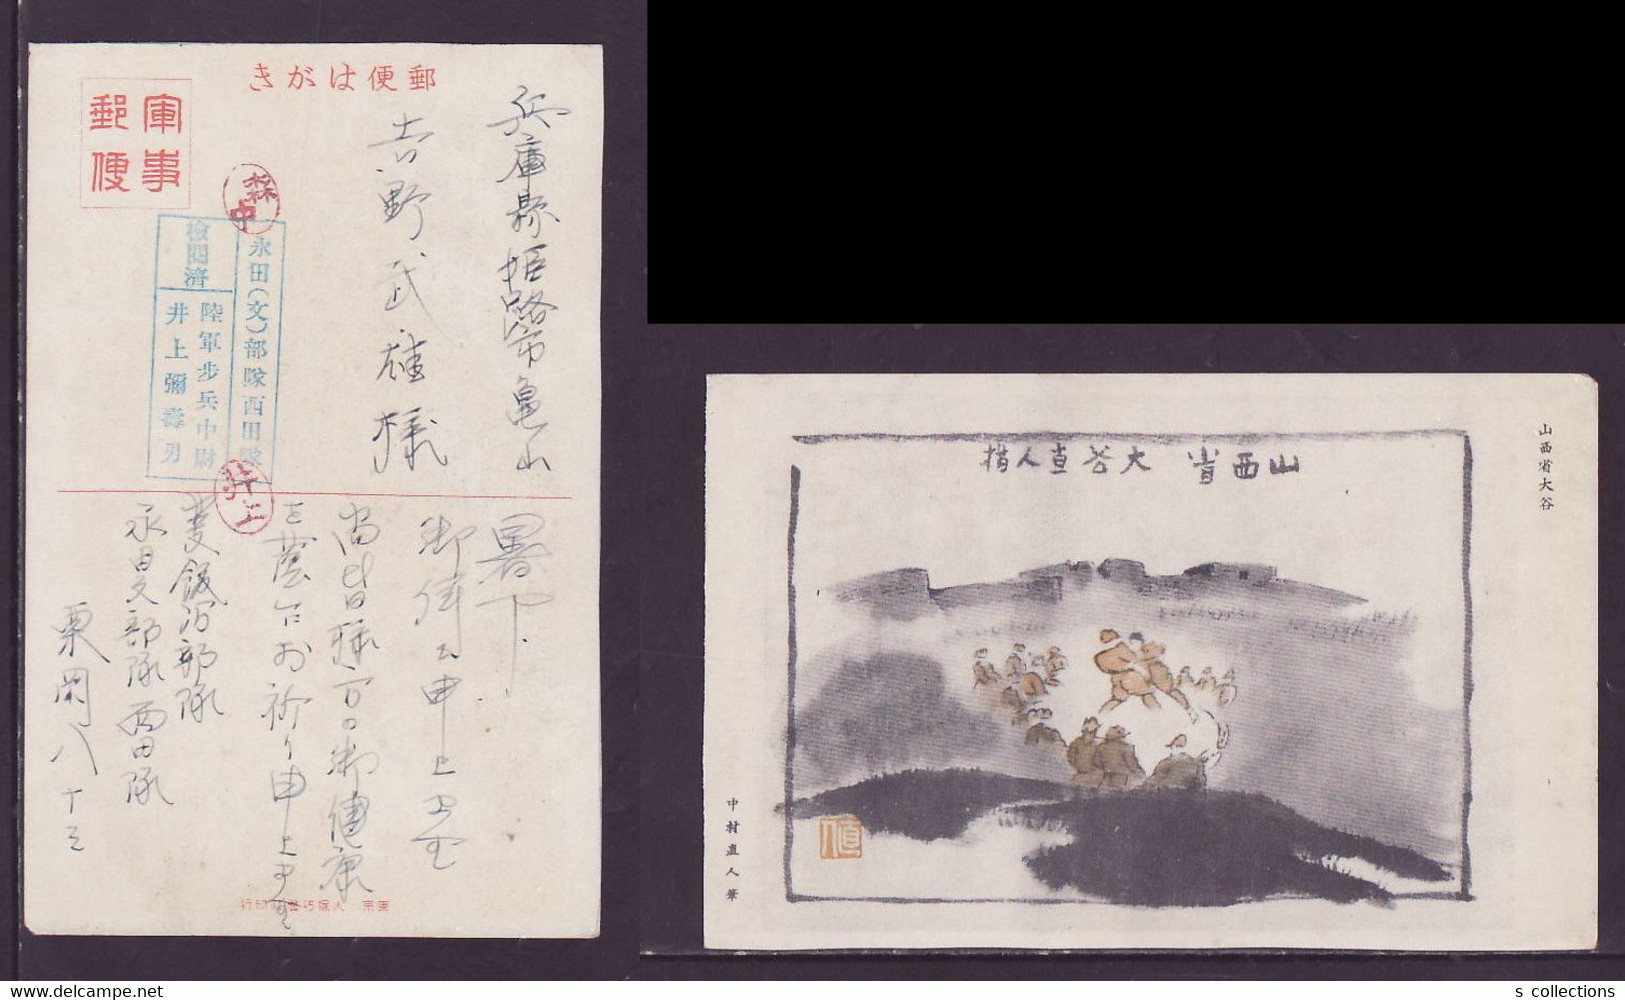 郵便はがき
軍事
郵便
兵庫縣姫路市亀山
吉野武雄様
森
中
永田(文)部隊西田隊
檢閲濟
陸軍步兵中尉
井上彌壽男
井上
暑下
御伺ひ申上ます
尚皆様方の御健康
を蔭ら お祈り申上ます
飯沼部隊
永田文部隊西田隊
栗岡八十三
東京 大塚巧藝社印行
山西省 大谷直人描
山西省大谷
中村直人筆
直人
s collections